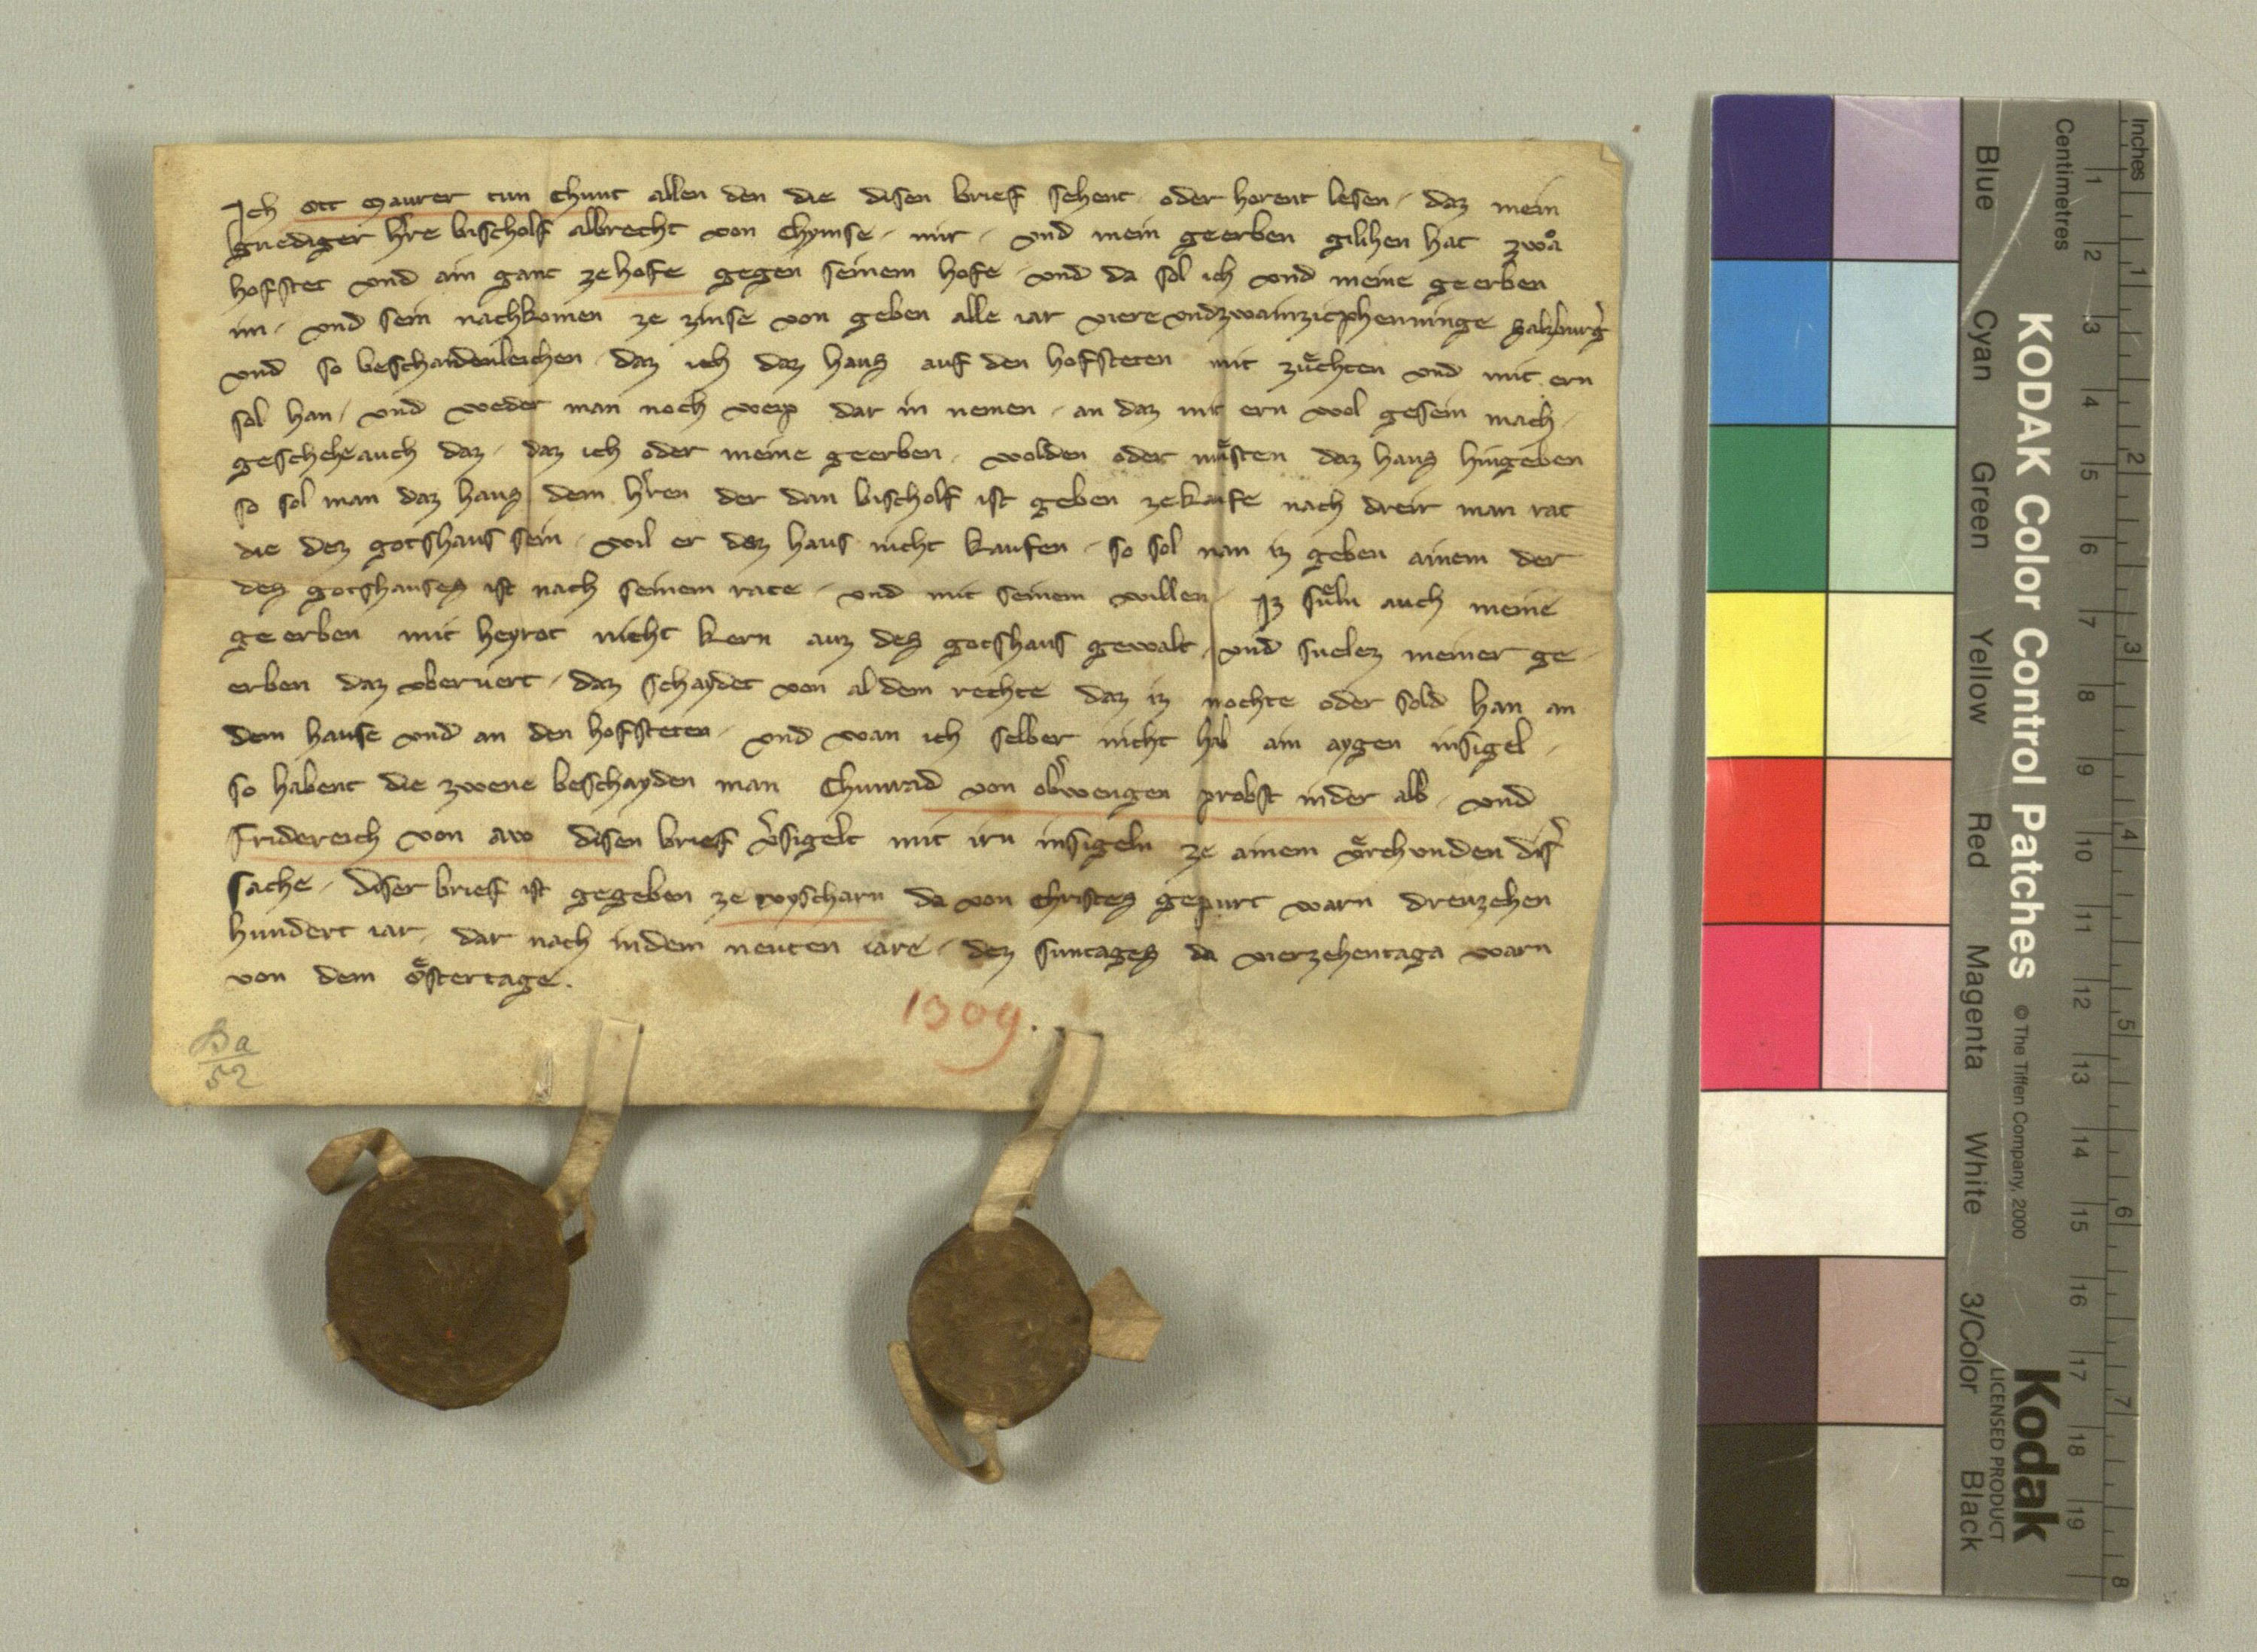 Ich ott Maurer tun chunt allen den die disen brief sehent oder horent lesen, daz mein
gnediger hr̉re bischolf albrecht von Chymse, mir, vnd mein geerben gilihen hat zwoͤa
hofstet vnd ain gant ze hofe gegen seinem hofe, vnd da sol ich vnd meine geerben
im, vnd sein nachkomen ze zinse von geben alle iar viere vndzwainzicphenninge salzburg̉
vnd so beschaidenleichen, daz ich daz haus auf den hofsteten mit zuͤchten vnd mit ern
sol han, vnd weder man noch weip dar in nemen, an daz mit ern wol gesein mach,
geschehe auch daz, daz ich oder meine geerben, wolden oder muͤsten daz haus hingeben
so sol man daz haus dem hr̉ren der dan bischolf ist geben ze kaufe nach dreir man rat
die dez gotshaus sein, wil er dez haus nicht kaufen, so sol man iz geben ainem der
des gotshauses ist nach seinem rate, vnd mit seinem willen, Iz suͤln auch meine
geerben mit heyrot nicht kern auz des gotshaus gewalt, vnd suelez meiner ge-
erben daz vberuert, daz schaydet von al dem rechte daz iz mochte oder sold han an
dem hause vnd an den hofsteten, vnd wan ich selber nicht hab ain aygen insigel,
so habent die zwene beschayden man Chunrad von obwengen probst inder alb, vnd
fridereich von aw disen brief v̉sigelt mit irn insigeln ze ainem vͤrchunden dis̉
sache, diser brief ist gegeben ze vyscharn da von christes gepurt warn dreuzehen
hundert iar, dar nach indem neuten iare, dez suntages da vierzehentaga warn
von dem oͤstertage.
1309.
Da
52
KODAK Color Control Patches © The Tiffen Company, 2000 Kodak
LICENSED PRODUCT
Blue Cyan Green Yellow Red Magenta White 3/Color Black
Inches 1 2 3 4 5 6 7 8
Centimetres 1 2 3 4 5 6 7 8 9 10 11 12 13 14 15 16 17 18 19